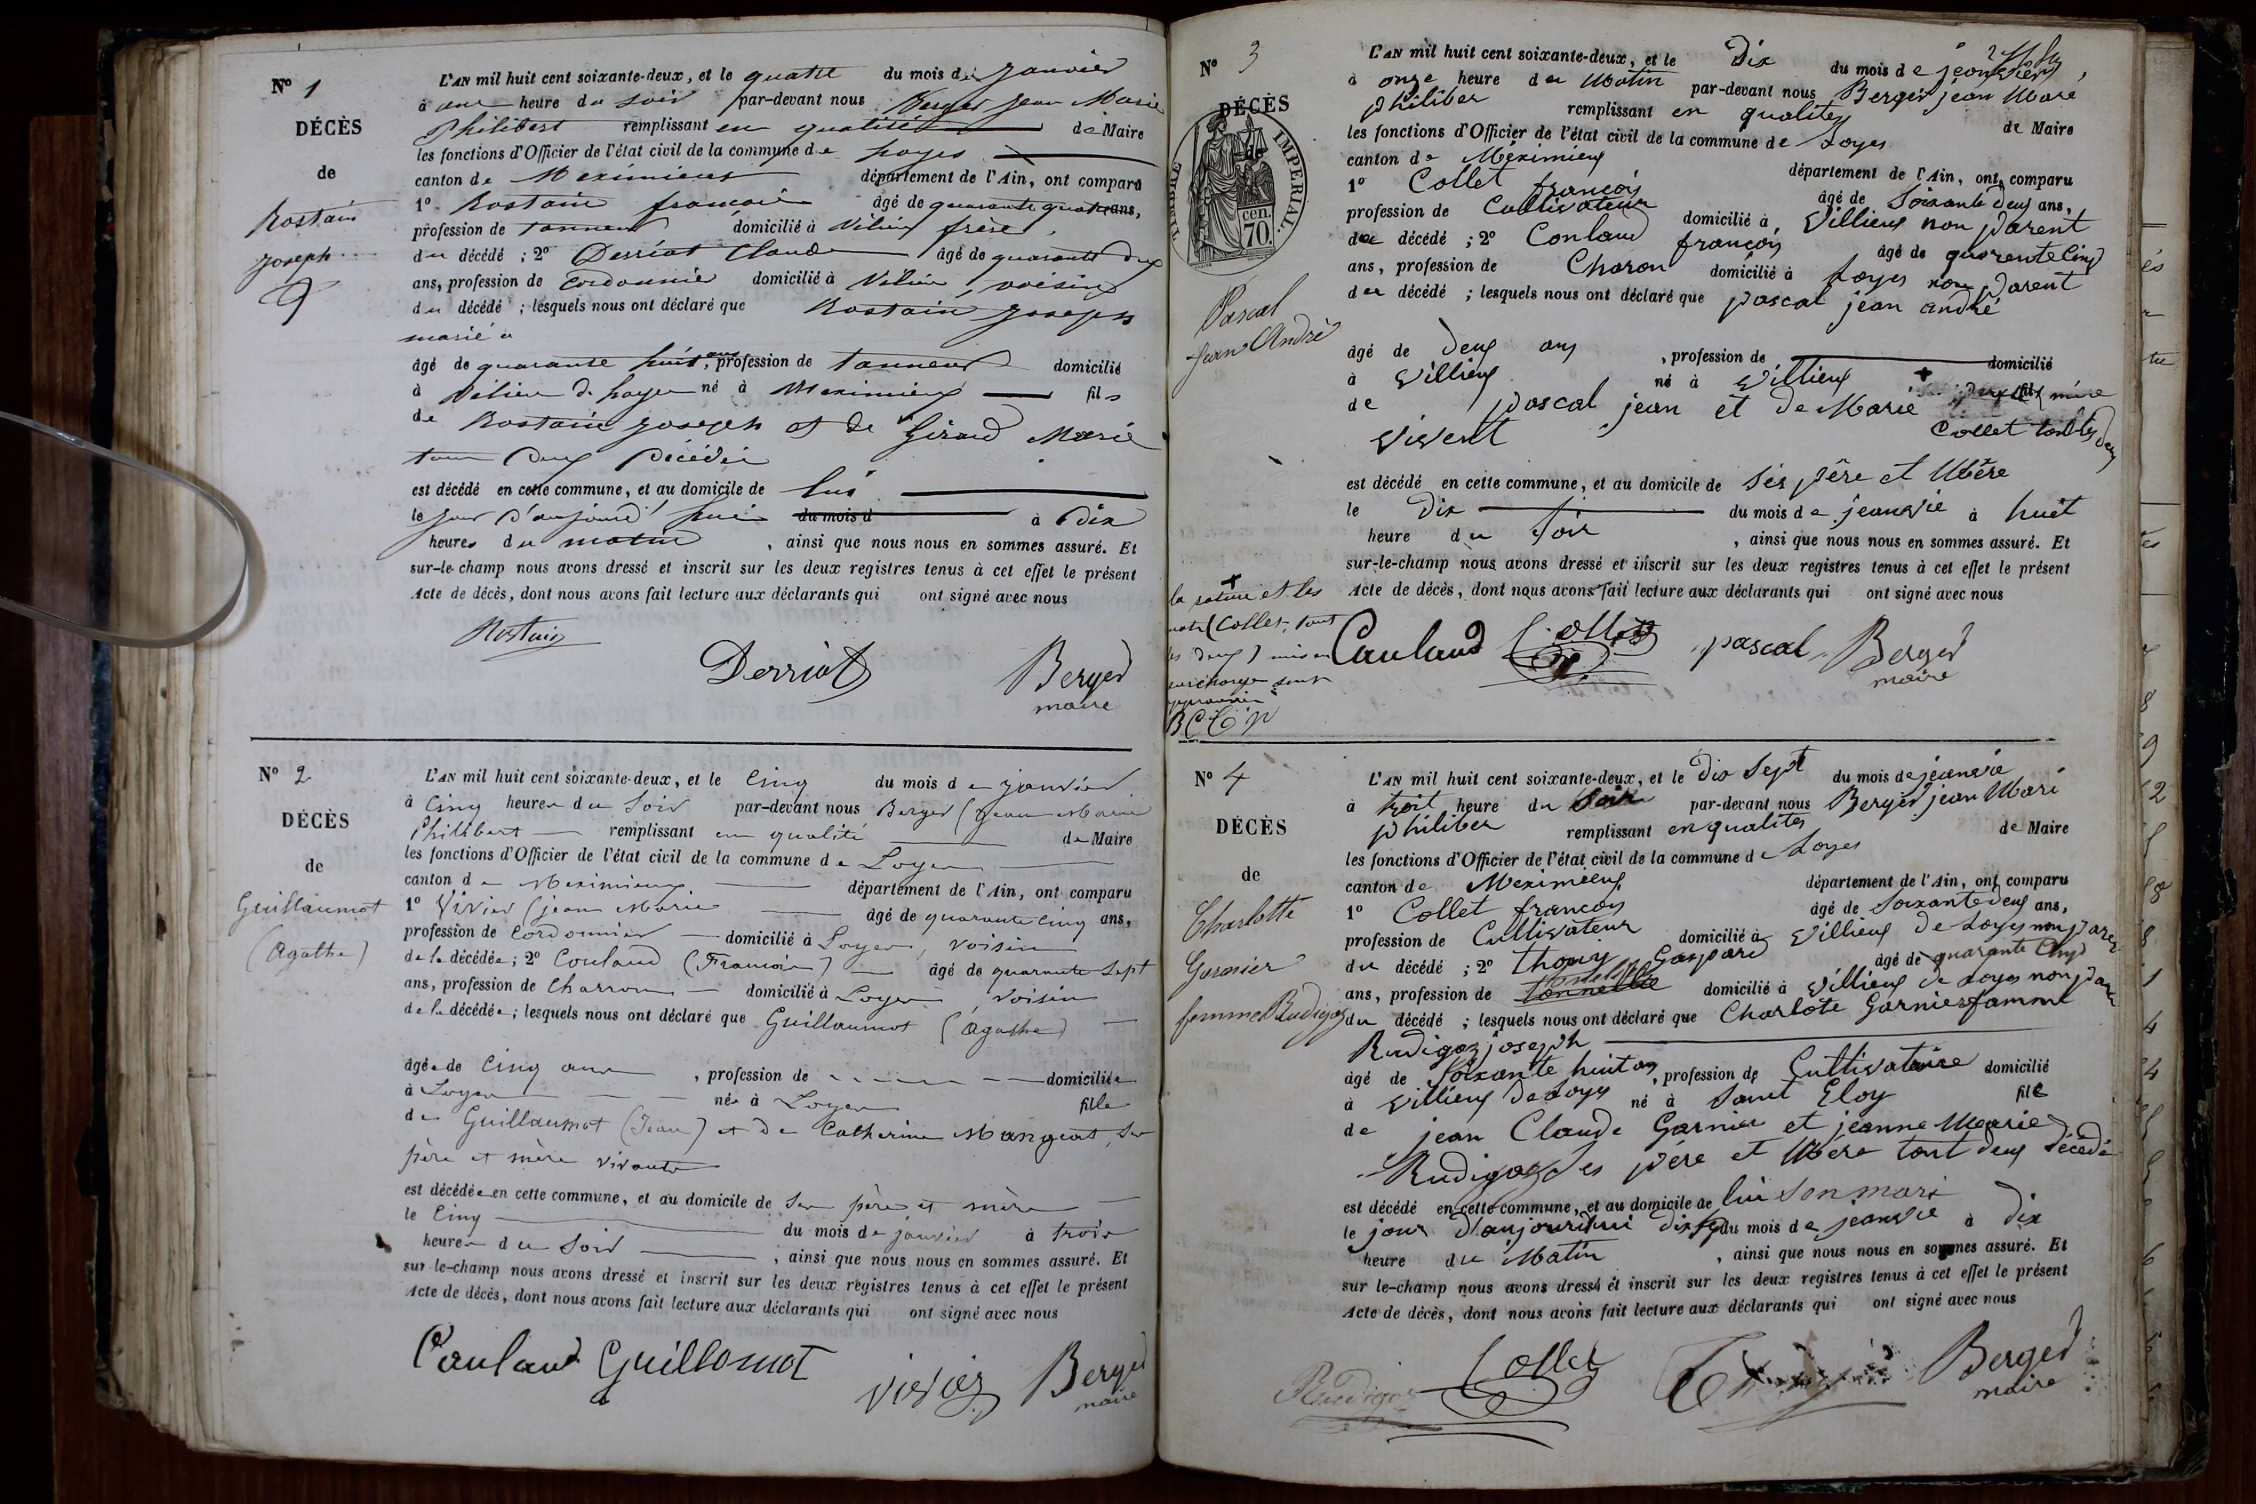 N° 1
DÉCÈS
de
Rostain
Joseph
L'AN mil huit cent soixante-deux, et le quatre du mois de janvier
à une heure du soir par-devant nous Berger Jean Marie
Philibert remplissant en qualité de Maire
les fonctions d'Officier de l'état civil de la commune de Loyes
canton de Meximieux département de l'Ain, ont comparu
1° Rostain françois âgé de quarante quatre ans,
profession de tanneur domicilié à Vilieu frère
du décédé ; 2° Derriot Claude âgé de quarante deux
ans, profession de cordonnier domicilié à Vilieu, voisin
du décédé ; lesquels nous ont déclaré que Rostain joseph
marié a
âgé de quarante huit ans, profession de tanneur domicilié
à Vilieu de Loyes né à Meximieux fils
de Rostain joseph et de Girard Marie
tous deux décédés
est décédé en cette commune, et au domicile de lui
le jour d'aujourd'hui du mois d à dix
heures du matin, ainsi que nous nous en sommes assuré. Et
sur-le-champ nous avons dressé et inscrit sur les deux registres tenus à cet effet le présent
Acte de décès, dont nous avons fait lecture aux déclarants qui ont signé avec nous
Rostain
Derriot
Berger
maire
N° 2
DÉCÈS
de
Guillaumot
(Agathe)
L'AN mil huit cent soixante-deux, et le cinq du mois de janvier
à cinq heures du soir par-devant nous Berger (Jean Marie
Philibert remplissant en qualité de Maire
les fonctions d'Officier de l'état civil de la commune de Loyes
canton de Meximieux département de l'Ain, ont comparu
1° Vivier (jean Marie âgé de quarante cinq ans,
profession de cordonnier domicilié à Loyes, voisin
de la décédée ; 2° Couland (François) âgé de quarante sept
ans, profession de charron domicilié à Loyes voisin
de la décédée ; lesquels nous ont déclaré que Guillaumot (Agathe)
âgée de cinq ans, profession de domiciliée
à Loyes née à Loyes fille
de Guillaumot (Jean) et de Catherine Mangeat, ses
père et mère vivants
est décédée en cette commune, et au domicile de ses père et mère
le cinq du mois de janvier à trois
heures du soir, ainsi que nous nous en sommes assuré. Et
sur-le-champ nous avons dressé et inscrit sur les deux registres tenus à cet effet le présent
Acte de décès, dont nous avons fait lecture aux déclarants qui ont signé avec nous
Couland Guillomot
vivier Berger
maire
N° 3
DÉCÈS
de
TIMBRE IMPERIAL
70 cen.
Pascal
Jean André
L'AN mil huit cent soixante-deux, et le Dix du mois de jeanvier
à onze heure du Matin par-devant nous Berger jean Mare
philiber remplissant en qualites de Maire
les fonctions d'Officier de l'état civil de la commune de Loyes
canton de Méximieux département de l'Ain, ont comparu
1° Collet françois âgé de Soixante deux ans,
profession de Cultivateur domicilié à Villieux non parent
du décédé ; 2° Conland françois âgé de quarente cinq
ans, profession de Charon domicilié à Loyes non parent
du décédé ; lesquels nous ont déclaré que pascal jean andré
âgé de deux ans, profession de domicilié
à Villieux né à Villieux fil
de pascal jean et de Marie mére
Collet tous les deux
vivent
est décédé en cette commune, et au domicile de Ses père et Mère
le Dix du mois de jeanvié à huit
heure du Soir, ainsi que nous nous en sommes assuré. Et
sur-le-champ nous avons dressé et inscrit sur les deux registres tenus à cet effet le présent
Acte de décès, dont nous avons fait lecture aux déclarants qui ont signé avec nous
la rature et les
mots (Collet, tout
les deux) mis en
surcharge sont
approuvés
B C C P
Couland Collet pascal Berger
maire
N° 4
DÉCÈS
de
Charlotte
Garnier
femme Rudigoz
L'AN mil huit cent soixante-deux, et le Dix Sept du mois de jeanvié
à troit heure du Soir par-devant nous Berger jean Mari
philiber remplissant en qualites de Maire
les fonctions d'Officier de l'état civil de la commune de Loyes
canton de Meximieux département de l'Ain, ont comparu
1° Collet françois âgé de Soixante deux ans,
profession de Cultivateur domicilié à Villieux de Loyes non parent
du décédé ; 2° Gaspard âgé de quarante Cinq
ans, profession de domicilié à Villieux de Loyes non paren
du décédé ; lesquels nous ont déclaré que Charlote Garnier famme
Rudigoz joseph
âgé de Soixante huit ans, profession de Cultivatrice domicilié
à Villieux de Loyes né à Saint Eloy fille
de jean Claude Garnier et jeanne Mearie
Rudigoz Ses père et Mère tout deux décédé
est décédé en cette commune, et au domicile de lui Son mari
le jour d'aujourdhui dix sept du mois de jeanvié à Dix
heure du Matin, ainsi que nous nous en sommes assuré. Et
sur le-champ nous avons dressé et inscrit sur les deux registres tenus à cet effet le présent
Acte de décès, dont nous avons fait lecture aux déclarants qui ont signé avec nous
Rudigoz Collet Berger
maire